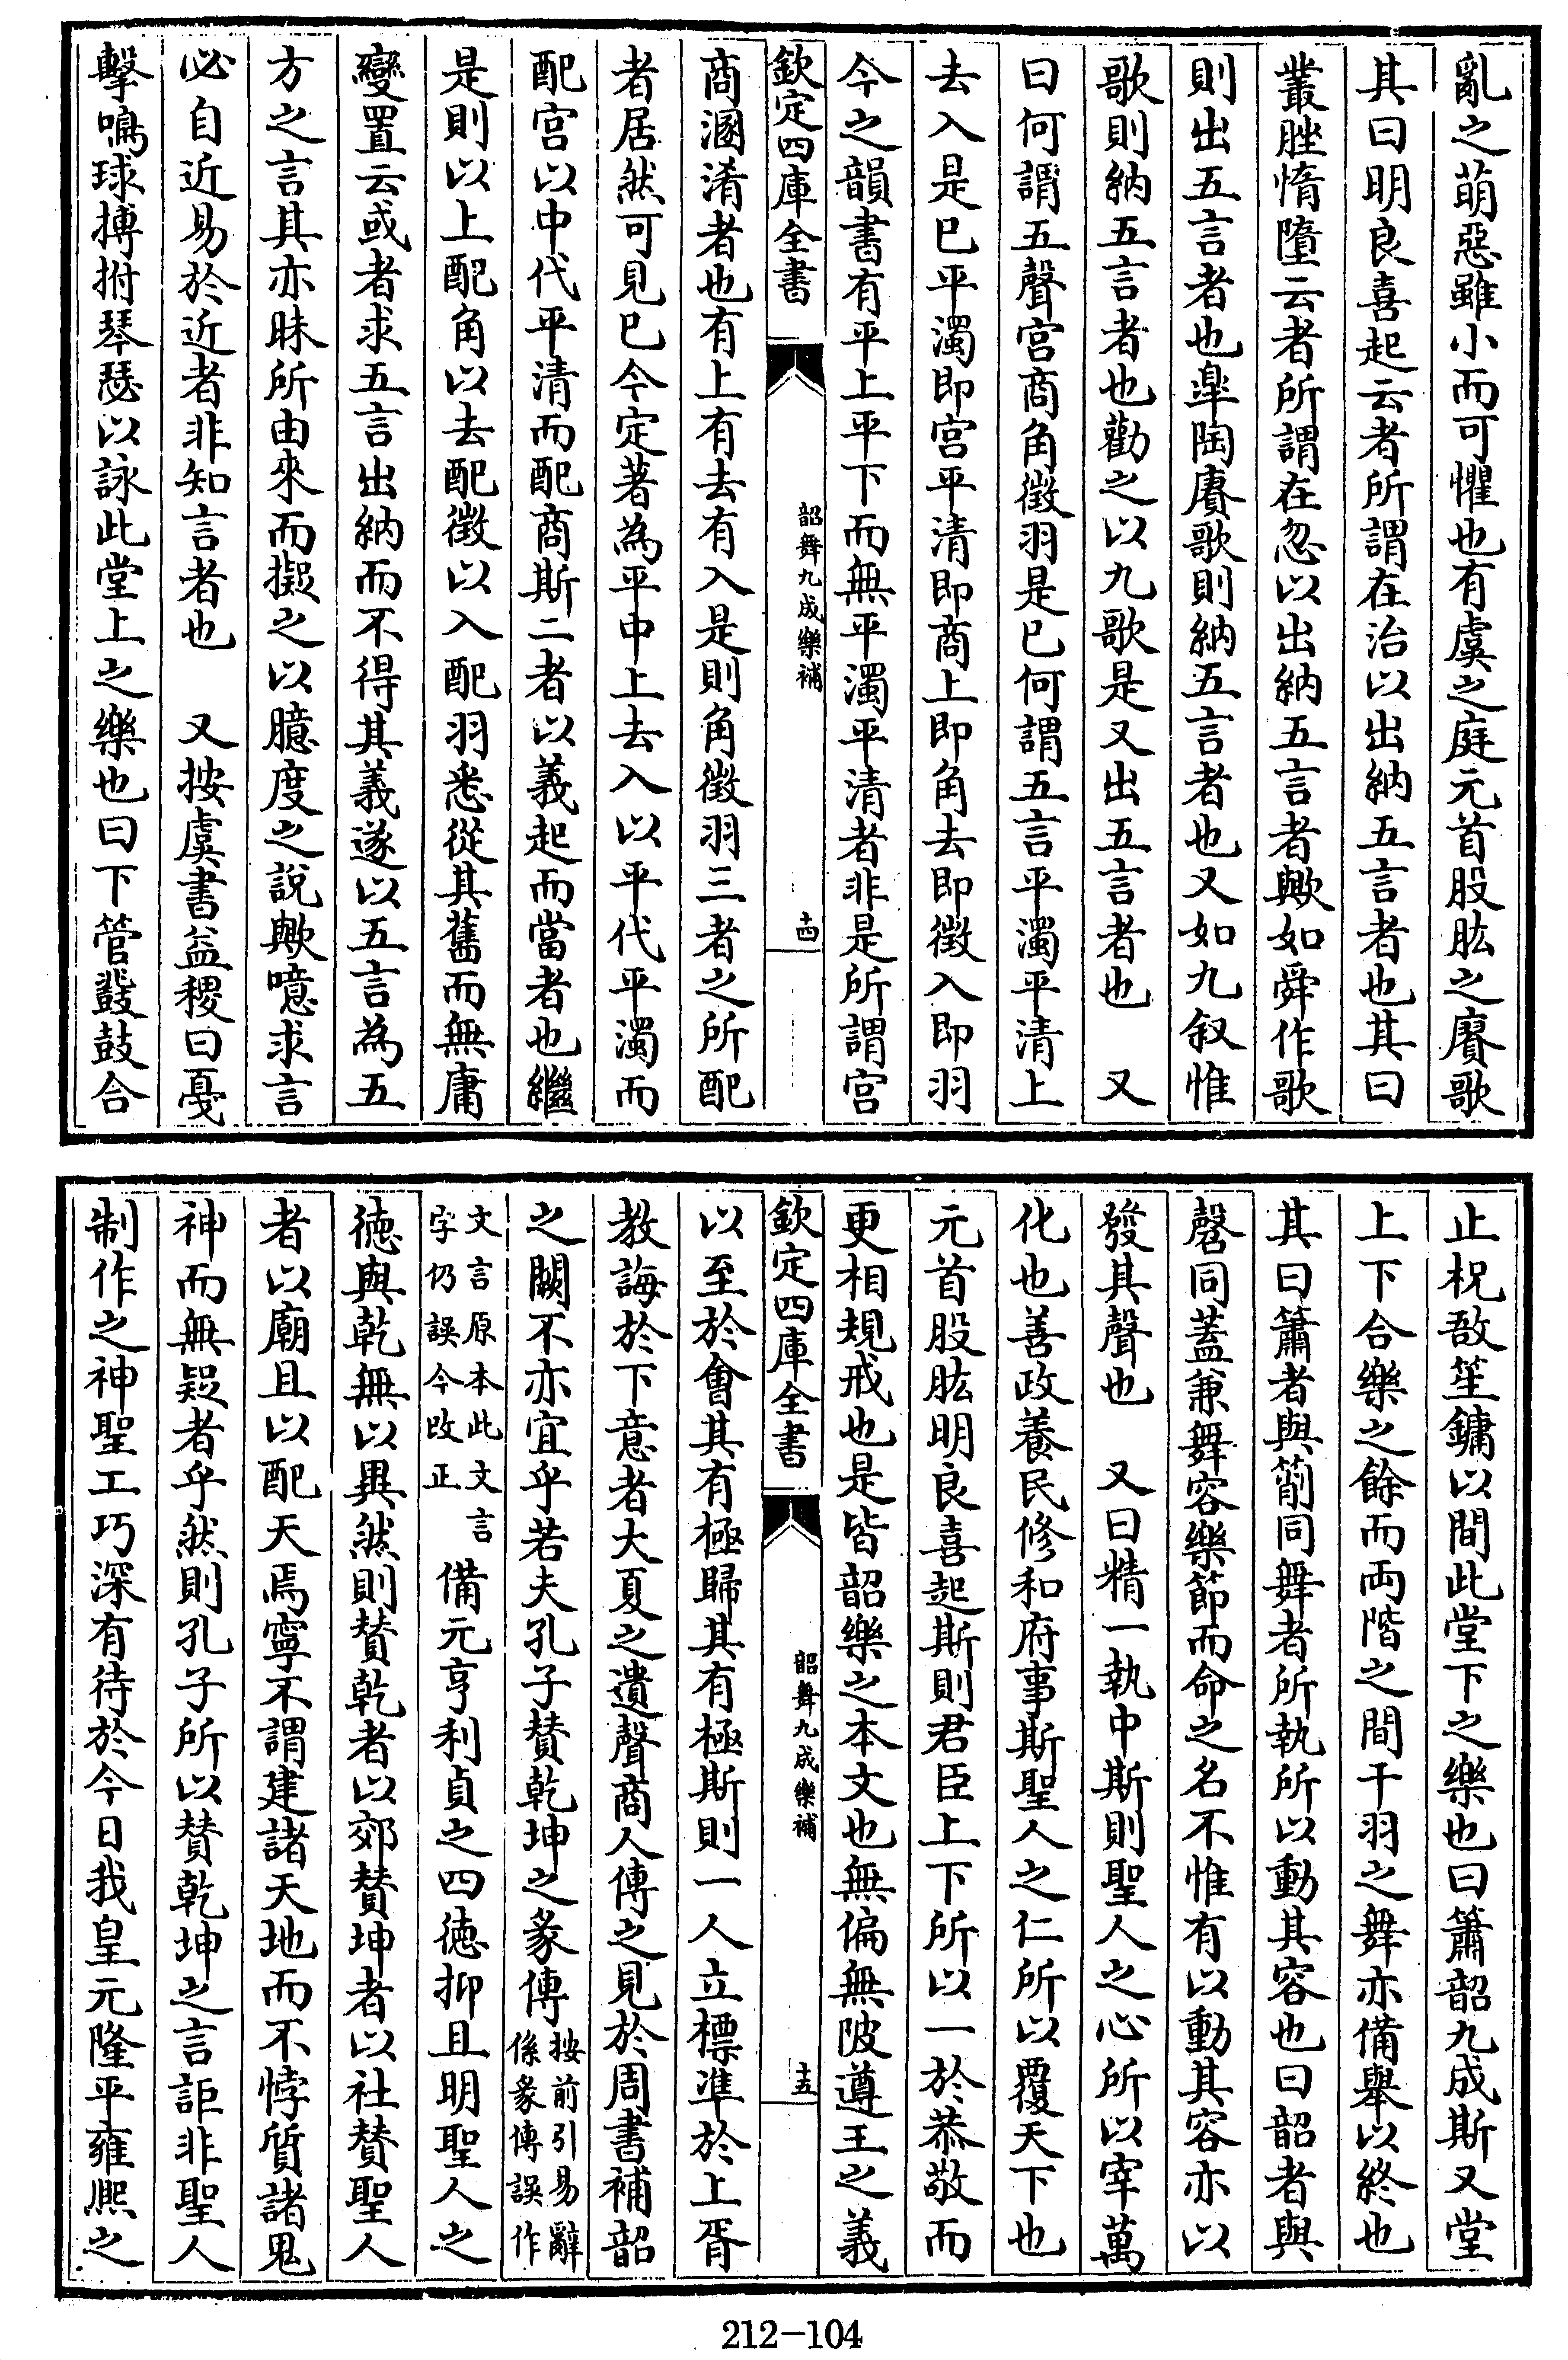 亂之萌惡雖小而可懼也有虞之庭元首股肱之賡歌
其曰明良喜起云者所謂在治以出納五言者也其曰
叢脞惰隳云者所謂在忽以出納五言者歟如舜作歌
則出五言者也臯陶賡歌則納五言者也又如九叙惟
歌則納五言者也勸之以九歌是又出五言者也　又
曰何謂五聲宫商角徴羽是已何謂五言平濁平清上
去入是已平濁即宫平清即商上即角去即徴入即羽
今之韻書有平上平下而無平濁平清者非是所謂宫
欽定四庫全書
韶舞九成樂補
十四
商溷淆者也有上有去有入是則角徴羽三者之所配
者居然可見已今定著為平中上去入以平代平濁而
配宫以中代平清而配商斯二者以義起而當者也繼
是則以上配角以去配徴以入配羽悉從其舊而無庸
變置云或者求五言出納而不得其義遂以五言為五
方之言其亦昧所由來而擬之以臆度之説歟噫求言
必自近易於近者非知言者也　又按虞書益稷曰戞
擊鳴球搏拊琴瑟以詠此堂上之樂也曰下管鼗鼓合
止柷敔笙鏞以間此堂下之樂也曰簫韶九成斯又堂
上下合樂之餘而両階之間干羽之舞亦備舉以終也
其曰簫者與箾同舞者所執所以動其容也曰韶者與
磬同蓋兼舞容樂節而命之名不惟有以動其容亦以
發其聲也　又曰精一執中斯則聖人之心所以宰萬
化也善政養民修和府事斯聖人之仁所以覆天下也
元首股肱明良喜起斯則君臣上下所以一於恭敬而
更相規戒也是皆韶樂之本文也無偏無陂遵王之義
欽定四庫全書
韶舞九成樂補
十五
以至於會其有極歸其有極斯則一人立標準於上胥
教誨於下意者大夏之遺聲商人傳之見於周書補韶
之闕不亦宜乎若夫孔子賛乾坤之彖傳按前引易辭係彖傳誤作
文言原本此文言字仍誤今改正備元亨利貞之四徳抑且明聖人之
徳與乾無以異然則賛乾者以郊賛坤者以社賛聖人
者以廟且以配天焉寧不謂建諸天地而不悖質諸鬼
神而無疑者乎然則孔子所以賛乾坤之言詎非聖人
制作之神聖工巧深有待於今日我皇元隆平雍熈之
212-104